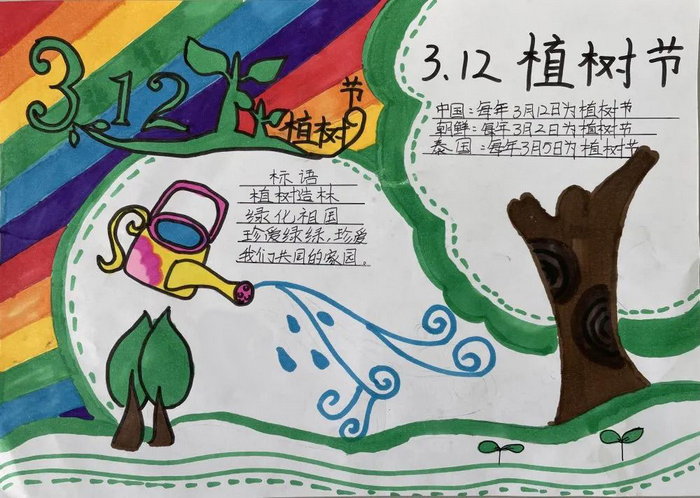 3.12
植树节
3.12 植树节
中国:每年3月12日为植树节
朝鲜:每年3月2日为植树节
泰国:每年3月5日为植树节
标语
植树造林
绿化祖国
珍爱绿绿,珍爱
我们共同的家园。